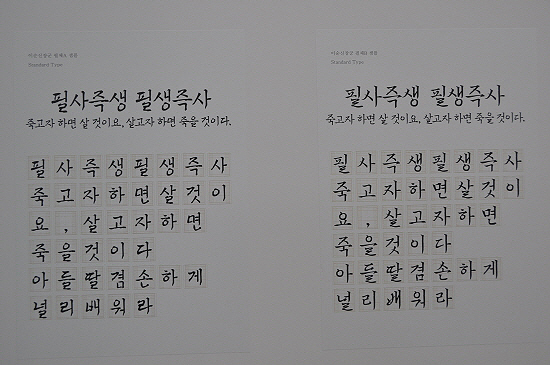 이순신장군 필체도 샘플
Standard Type
필사즉생 필생즉사
죽고자 하면 살 것이요, 살고자 하면 죽을 것이다.
필사즉생필생즉사
죽고자하면살것이
요, 살고자하면
죽을것이다
아들딸겸손하게
널리배워라
이순신장군 필체B 샘플
Standard Type
필사즉생 필생즉사
죽고자 하면 살 것이요, 살고자 하면 죽을 것이다.
필사즉생필생즉사
죽고자하면살것이
요, 살고자하면
죽을것이다
아들딸겸손하게
널리배워라